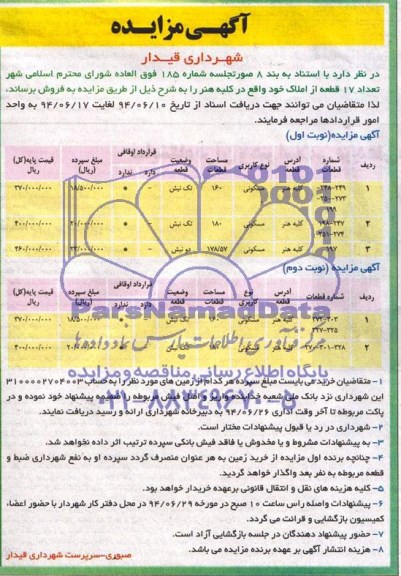 آگهی مزایده
شهرداری قیدار
در نظر دارد با استناد به بند ۸ صورتجلسه شماره ۱۸۵ فوق العاده شورای محترم اسلامی شهر
تعداد ۱۷ قطعه از املاک خود واقع در کلبه هنر را به شرح ذیل از طریق مزایده به فروش برساند،
لذا متقاضیان می توانند جهت دریافت اسناد از تاریخ ۹۴/۰۶/۱۰ لغایت ۹۴/۰۶/۱۷ به واحد
امور قراردادها مراجعه فرمایند.
آگهی مزایده(نوبت اول)
ردیف شماره قطعات آدرس قطعه نوع کاربری مساحت قطعه وضعیت قطعه قرارداد اوقافی دارد ندارد مبلغ سپرده (ریال) قیمت پایه(کل) ریال
۱ کلبه هنر مسکونی ۱۶۰ تک نبش - * ۱۸/۵۰۰/۰۰۰ ۳۷۰/۰۰۰/۰۰۰
۲ کلبه هنر مسکونی ۱۸۰ تک نبش - * ۲۰/۰۰۰/۰۰۰ ۴۰۰/۰۰۰/۰۰۰
۳ ۱۹۷ کلبه هنر مسکونی ۱۷۸/۵۷ دو نبش - * ۲۳/۰۰۰/۰۰۰ ۴۶۰/۰۰۰/۰۰۰
آگهی مزایده (نوبت دوم)
ردیف شماره قطعات آدرس قطعه نوع کاربری مساحت قطعه وضعیت قطعه قرارداد اوقافی دارد ندارد مبلغ سپرده (ریال) قیمت پایه(کل) ریال
۱ کلبه هنر مسکونی ۱۶۰ تک نبش ۱۸/۵۰۰/۰۰۰ ۳۷۰/۰۰۰/۰۰۰
۲ کلبه هنر مسکونی ۱۸۰ تک نبش ۴۰۰/۰۰۰/۰۰۰
ParsNamadData
پایگاه اطلاع رسانی مناقصه و مزایده
۰۲۱-۸۸۳۴۹۶۷۰-۵
۱- متقاضیان خرید می بایست مبلغ سپرده هر کدام از زمین های مورد نظر را به حساب ۳۱۰۰۰۰۲۷۰۴۰۰۳
این شهرداری نزد بانک ملی شعبه خدابنده واریز و اصل فیش مربوطه را ضمیمه پیشنهاد خود نموده و در
پاکت مربوطه تا آخر وقت اداری ۹۴/۰۶/۲۶ به دبیرخانه شهرداری ارائه و رسید دریافت نمایند.
۲- شهرداری در رد یا قبول پیشنهادات مختار است.
۳- به پیشنهادات مشروط و یا مخدوش یا فاقد فیش بانکی سپرده ترتیب اثر داده نخواهد شد.
۴- چنانچه برنده اول مزایده از خرید زمین به هر عنوان منصرف گردد سپرده او به نفع شهرداری ضبط و
قطعه مربوطه به نفر بعد واگذار خواهد گردید.
۵- کلیه هزینه های نقل و انتقال قانونی برعهده خریدار خواهد بود.
۶- پیشنهادات واصله راس ساعت ۱۰ صبح در مورخه ۹۴/۰۶/۲۹ در محل دفتر کار شهردار با حضور اعضاء
کمیسیون بازگشایی و قرائت می گردد.
۷- حضور پیشنهاد دهندگان در جلسه بازگشایی آزاد است.
۸- هزینه انتشار آگهی بر عهده برنده مزایده می باشد.
صبوری-سرپرست شهرداری قیدار